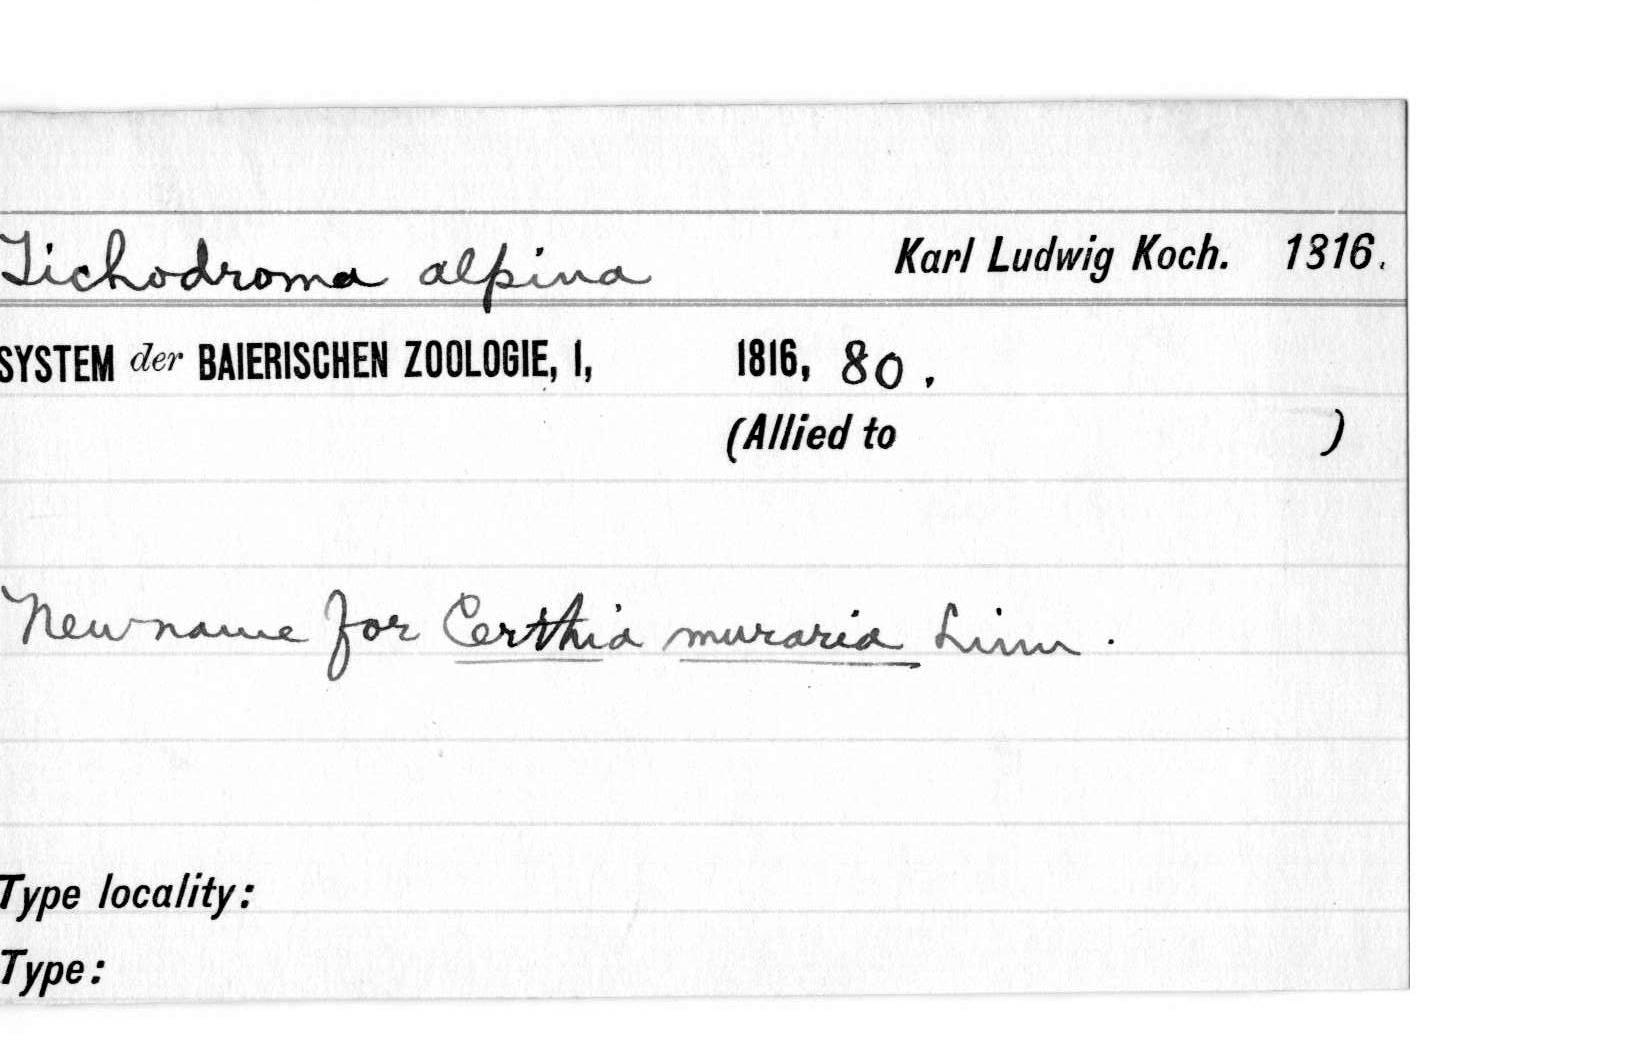 Tichodroma alpina Karl Ludwig Koch. 1816.
SYSTEM der BAIERISCHEN ZOOLOGIE, I, 1816, 80.
(Allied to )
New name for Certhia muraria Linn.
Type locality:
Type: